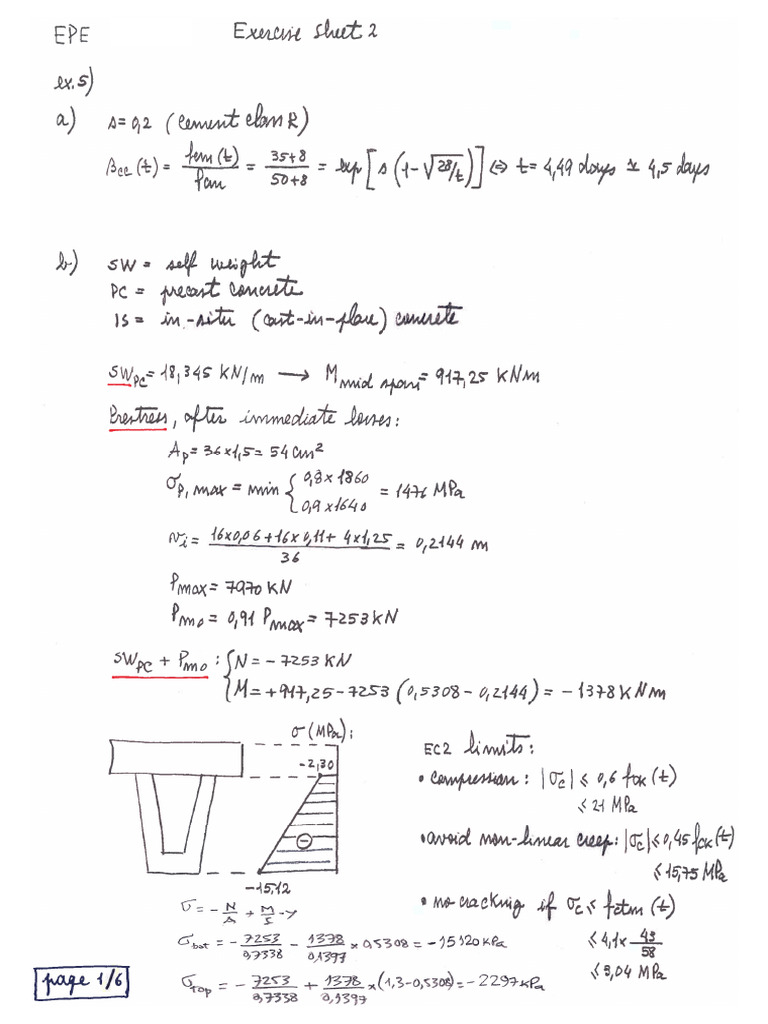 EPE
Exercise sheet 2
ex.5)
a) s=0,2 (cement class R)
βcc(t) = fcm(t)/fcm = 35+8/50+8 = exp[s(1-√28/t)] ⇔ t= 4,49 days ≃ 4,5 days
b) SW = self weight
PC = precast concrete
IS = in-situ (cast-in-place) concrete
SWPC = 18,345 KN/m → Mmid span = 917,25 KNm
Prestress, after immediate losses:
Ap = 36x1,5 = 54 cm²
σp,max = min { 0,8x1860
0,9x1640 = 1476 MPa
vi = 16x0,06+16x0,11+4x1,25/36 = 0,2144 m
Pmax = 7970 KN
Pmo = 0,91 Pmax = 7253 KN
SWPC + Pmo : { N = -7253 KN
M = +917,25-7253 (0,5308-0,2144) = -1378 KNm
σ (MPa):
-2,30
⊖
-15,12
EC2 limits:
• compression: |σc| ≤ 0,6 fck(t)
≤ 21 MPa
• avoid non-linear creep: |σc| ≤ 0,45 fck(t)
≤ 15,75 MPa
• no cracking if σc ≤ fctm(t)
≤ 4,1x 43/58
≤ 3,04 MPa
σ = - N/A + M/I · y
σbot = - 7253/0,7338 - 1378/0,1397 x 0,5308 = -15120 kPa
σTop = - 7253/0,7338 + 1378/0,1397 x (1,3-0,5308) = -2297 kPa
page 1/6